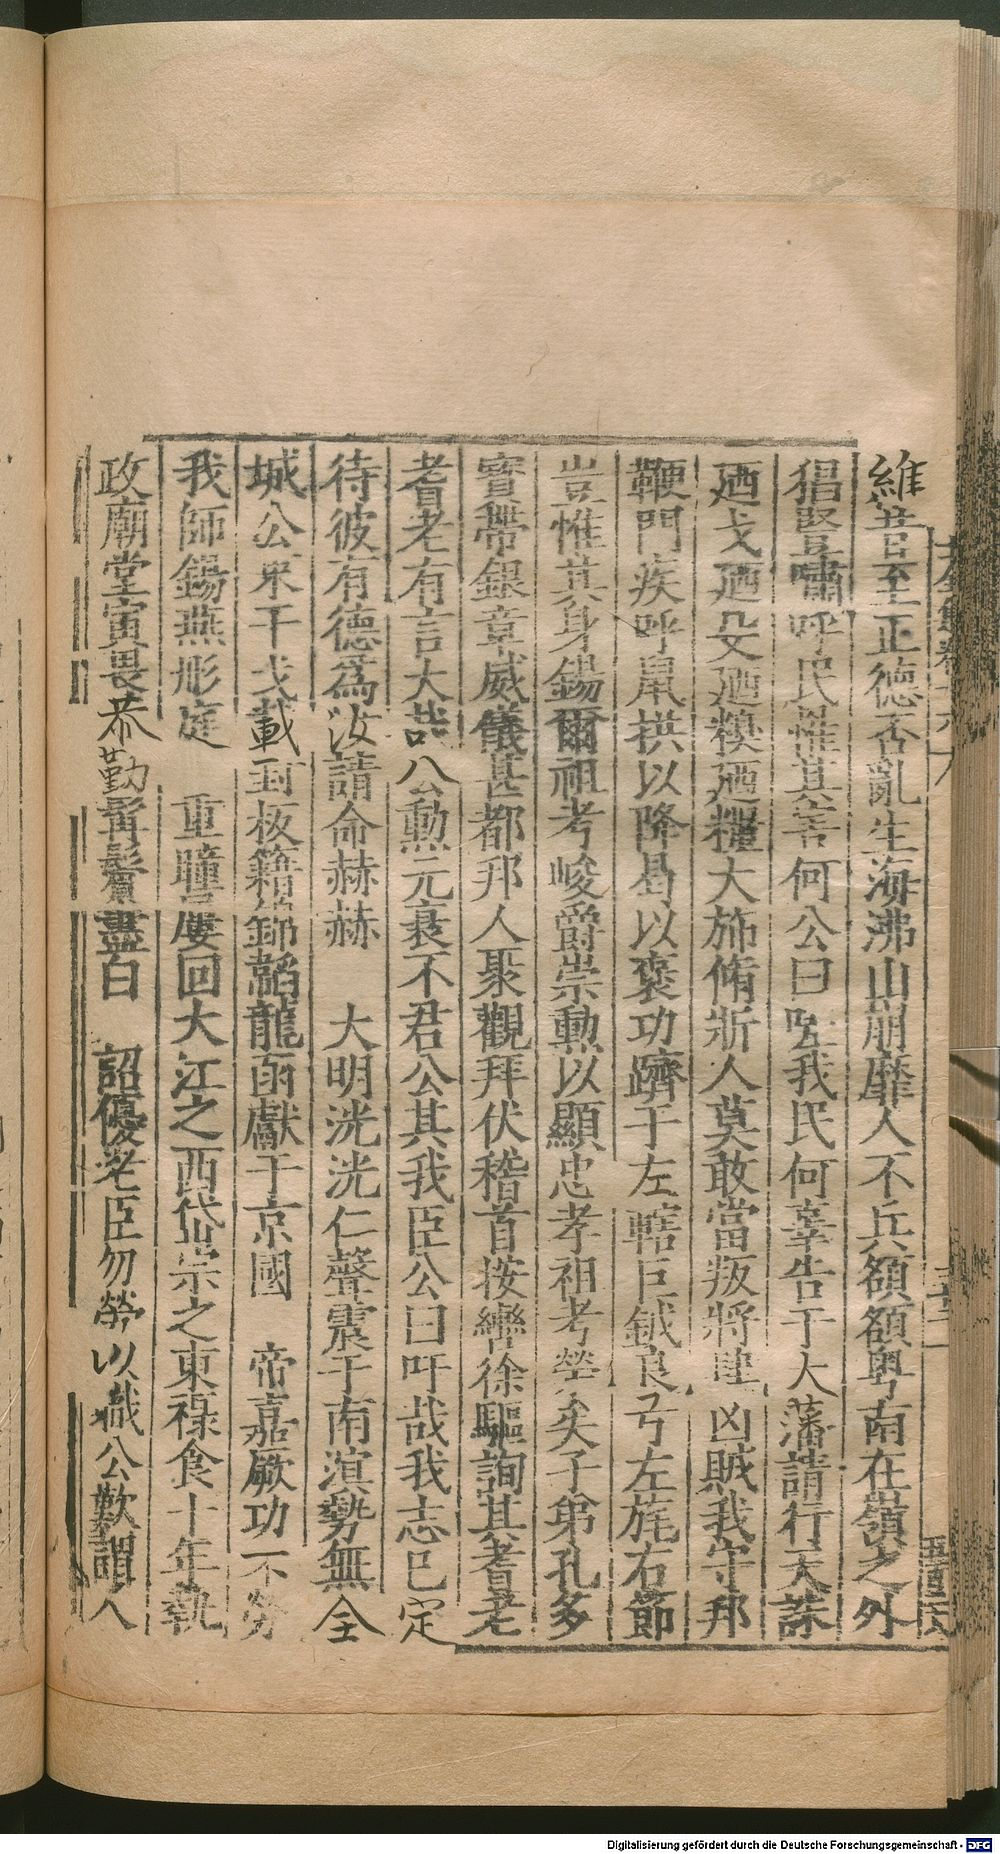 維昔至正德否亂生海沸山崩靡人不兵額額粤南在嶺之外
猖豎嘯呼民惟其害何公曰咥我民何辜告于大藩請行天誅
廼戈廼殳廼糗廼糧大斾脩斨人莫敢當叛將陸凶賊我守邦
鞭門疾呼鼠拱以降曷以褒功躋于左轄巨鉞良弓左旄右節
豈惟其身錫爾祖考峻爵崇勳以顯忠孝祖考榮矣子弟孔多
寳帶銀章威儀甚都邦人聚觀拜伏稽首按轡徐驅詢其耆老
耆老有言大哉公勳元衰不君公其我臣公曰吁哉我志已定
待彼有德爲汝請命赫赫 大明洸洸仁聲震于南溟勢無全
城公束干戈載封板籍錦韜龍函獻于京國 帝嘉厥功不勞
我師錫燕彤庭 重瞳屢回大江之西岱宗之東祿食十年執
政廟堂寅畏恭勤髯鬢盡白 詔優老臣勿勞以職公歎謂人
Digitalisierung gefördert durch die Deutsche Forschungsgemeinschaft - DFG